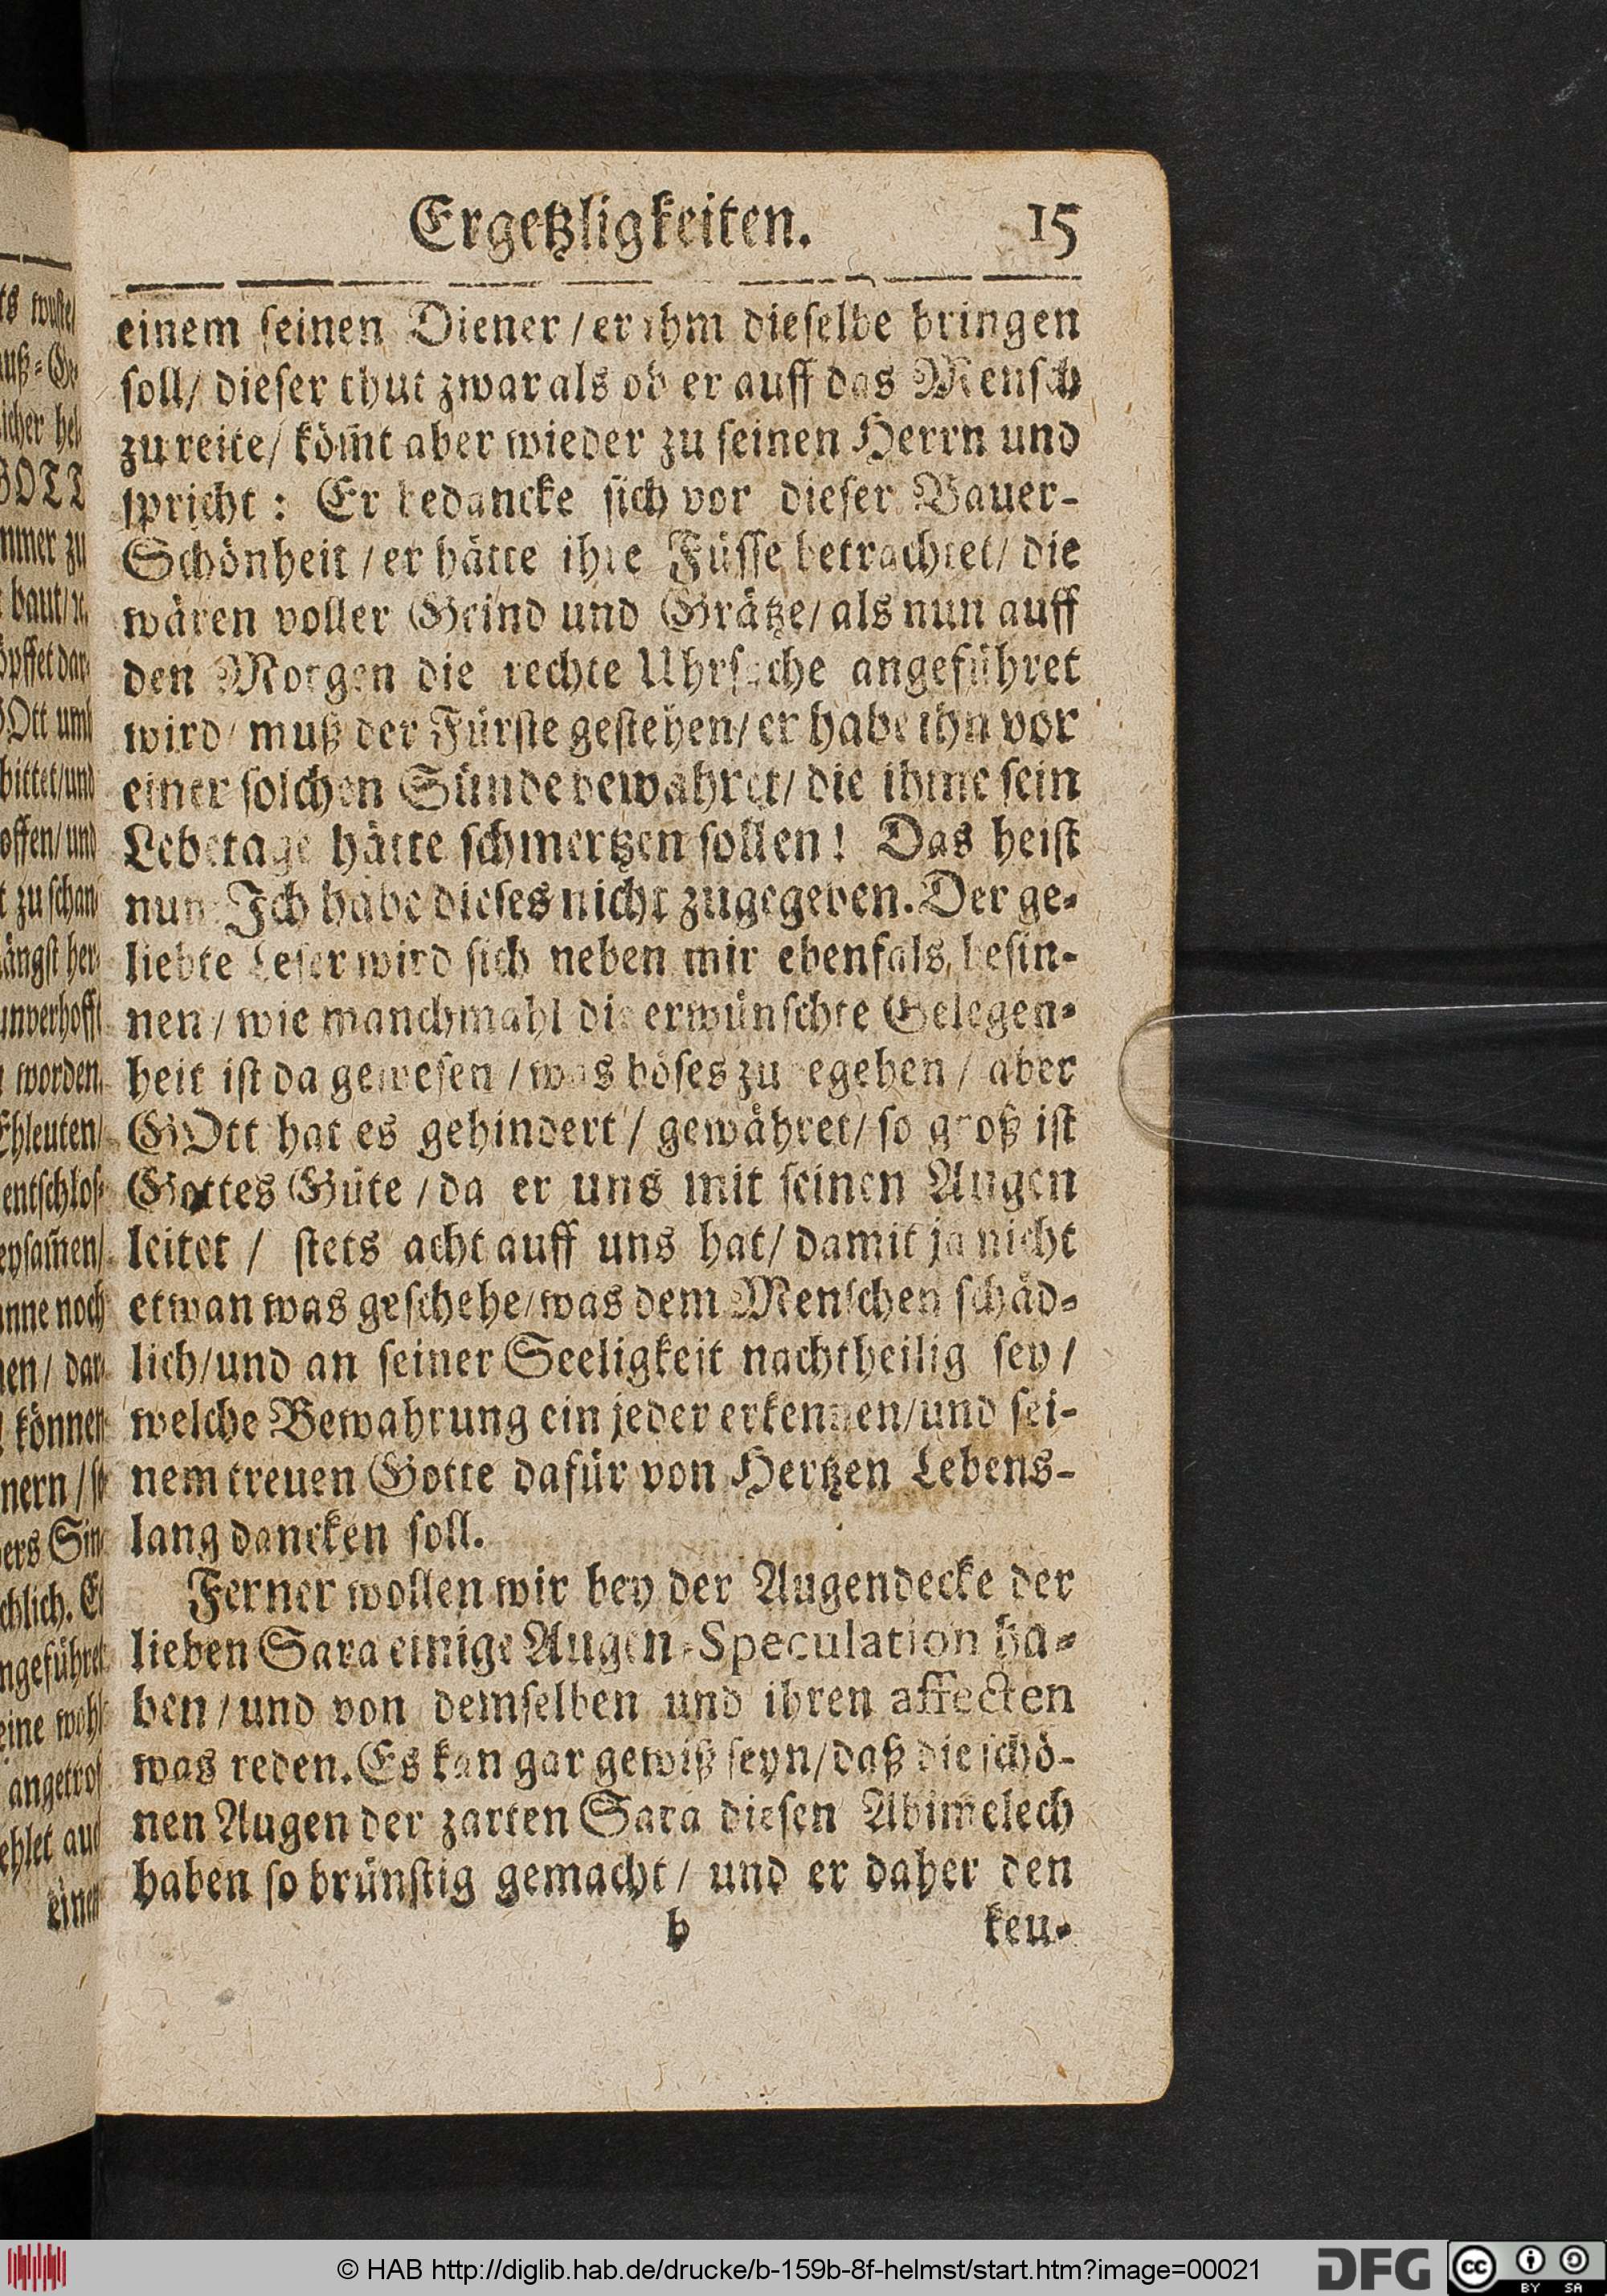 Ergetzligkeiten. 15
einem seinen Diener / er ihm dieselbe bringen
soll / dieser thut zwar als ob er auff das Mensch
zu reite / köm̃t aber wieder zu seinen Herrn und
spricht: Er bedancke sich vor dieser Bauer-
Schönheit / er hätte ihre Füsse betrachtet / die
wären voller Grind und Grätze / als nun auff
den Morgen die rechte Uhrsache angeführet
wird / muß der Fürste gestehen / er habe ihn vor
einer solchen Sünde bewahret / die ihme sein
Lebetage hätte schmertzen sollen! Das heist
nun Ich habe dieses nicht zugegeben. Der ge-
liebte Leser wird sich neben mir ebenfals besin-
nen / wie manchmahl die erwünschte Gelegen-
heit ist da gewesen / was böses zu begehen / aber
GOtt hat es gehindert / gewähret / so groß ist
Gottes Güte / da er uns mit seinen Augen
leitet / stets acht auff uns hat / damit ja nicht
etwan was geschehe / was dem Menschen schäd-
lich / und an seiner Seeligkeit nachtheilig sey /
welche Bewahrung ein jeder erkennen / und sei-
nem treuen Gotte dafür von Hertzen Lebens-
lang dancken soll.
Ferner wollen wir bey der Augendecke der
lieben Sara einige Augen-Speculation ha-
ben / und von demselben und ihren affecten
was reden. Es kan gar gewiß seyn / daß die schö-
nen Augen der zarten Sara diesen Abimelech
haben so brünstig gemacht / und er daher den
b keu-
© HAB http://diglib.hab.de/drucke/b-159b-8f-helmst/start.htm?image=00021
DFG
cc BY SA